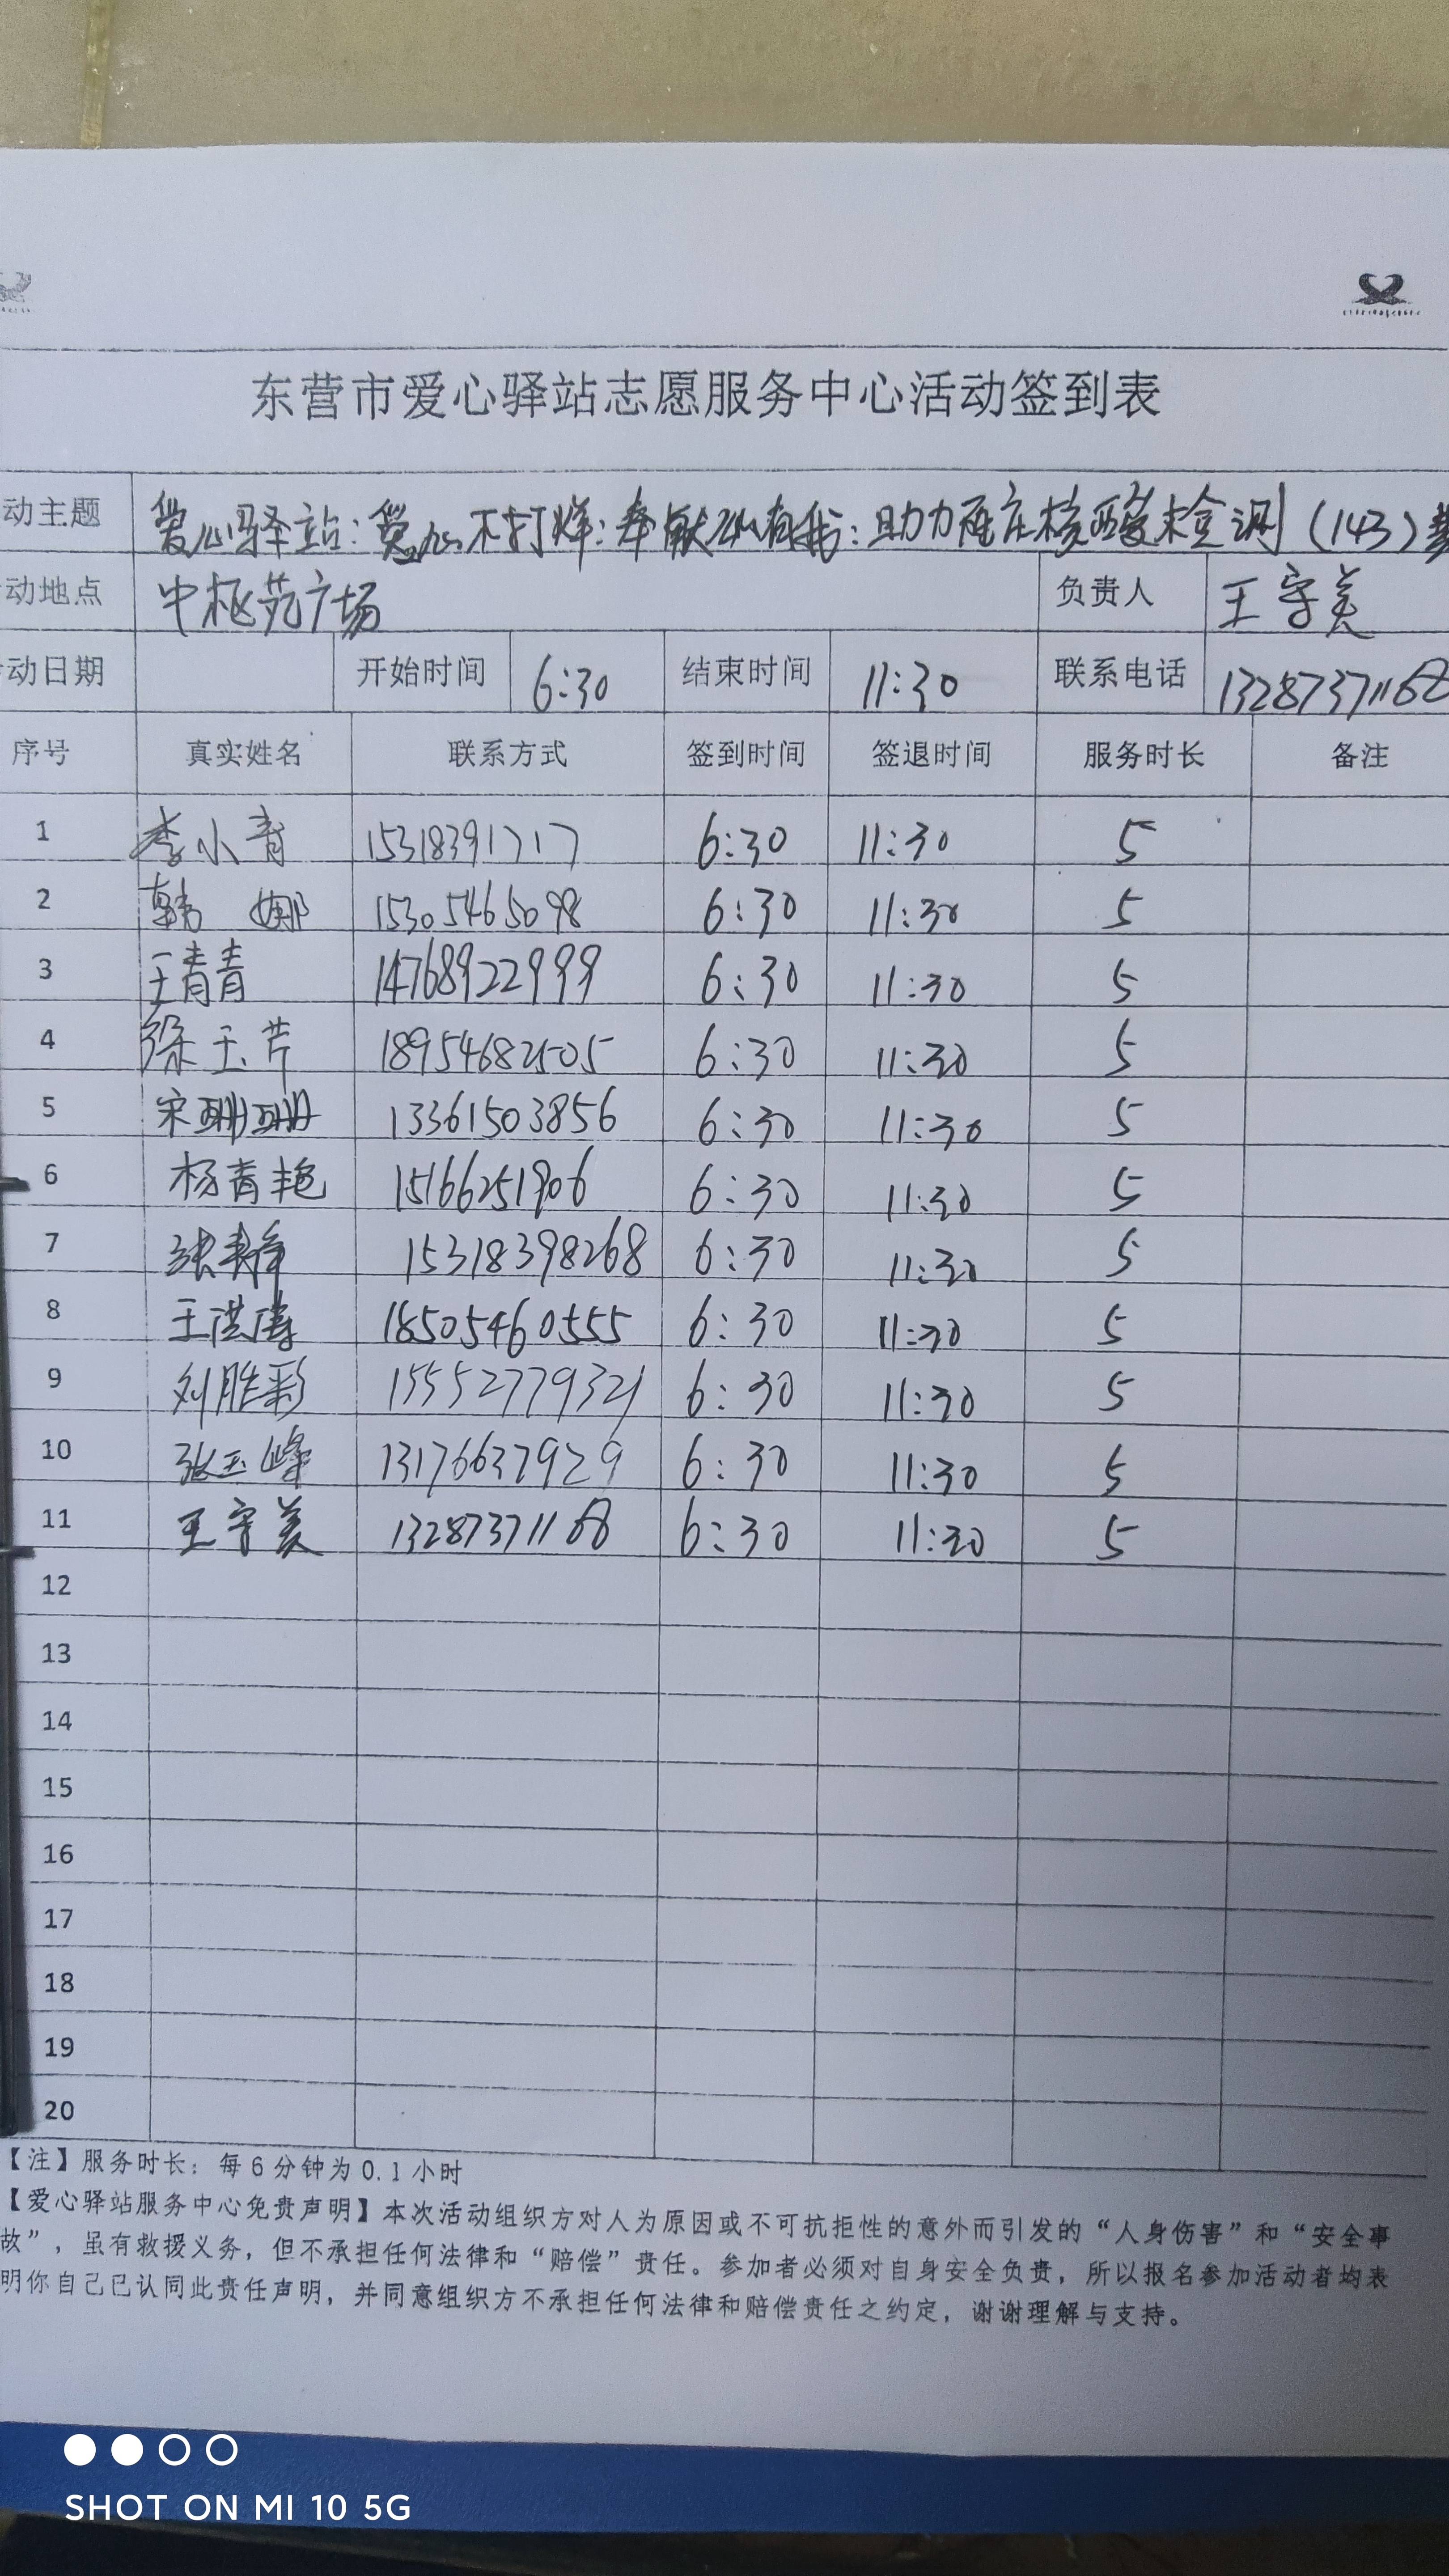 东营市爱心驿站志愿服务中心活动签到表
动主题 爱心驿站:爱心不打烊:奉献 有我:助力 庄核酸检测(143)
动地点 中枢苑广场 负责人 王守美
动日期 开始时间 6:30 结束时间 11:30 联系电话 13287371168
序号 真实姓名 联系方式 签到时间 签退时间 服务时长 备注
1 李小青 15318391717 6:30 11:30 5
2 韩娜 15305465098 6:30 11:30 5
3 王青青 14768922999 6:30 11:30 5
4 徐玉芹 18954682505 6:30 11:30 5
5 宋珊珊 13361503856 6:30 11:30 5
6 杨青艳 15166251906 6:30 11:30 5
7 张 15318398268 6:30 11:30 5
8 王洪涛 18505460555 6:30 11:30 5
9 刘胜彩 15552779321 6:30 11:30 5
10 张玉峰 13176637929 6:30 11:30 5
11 王守美 13287371168 6:30 11:30 5
12
13
14
15
16
17
18
19
20
【注】服务时长：每6分钟为0.1小时
【爱心驿站服务中心免责声明】本次活动组织方对人为原因或不可抗拒性的意外而引发的“人身伤害”和“安全事
故”，虽有救援义务，但不承担任何法律和“赔偿”责任。参加者必须对自身安全负责，所以报名参加活动者均表
明你自己已认同此责任声明，并同意组织方不承担任何法律和赔偿责任之约定，谢谢理解与支持。
SHOT ON MI 10 5G